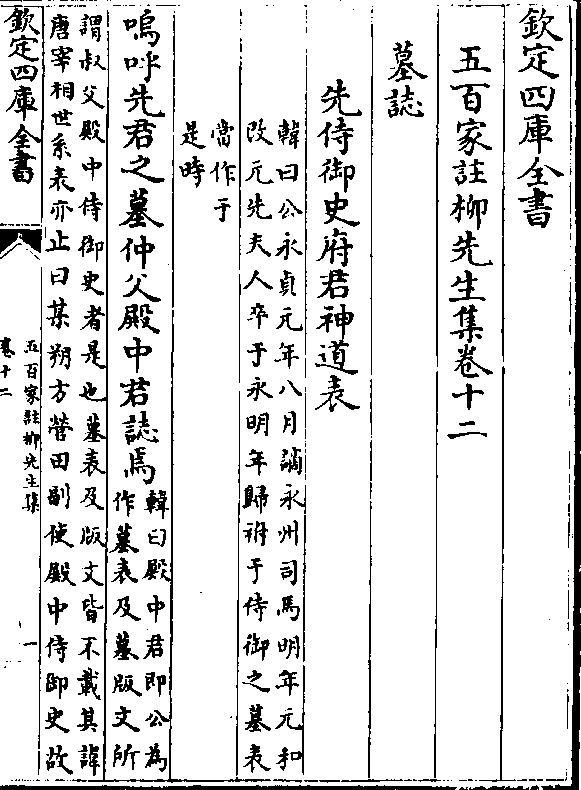 欽定四庫全書
五百家註柳先生集卷十二
墓誌
先侍御史府君神道表
韓曰公永貞元年八月謫永州司馬明年元和
改元先夫人卒于永明年歸祔于侍御之墓表
當作于
是時
嗚呼先君之墓仲父殿中君誌焉
韓曰殿中君即公為
作墓表及墓版文所
謂叔父殿中侍御史者是也墓表及版文皆不載其諱
唐宰相世系表亦止曰某朔方營田副使殿中侍御史故
欽定四庫全書
五百家註柳先生集
卷十二
一